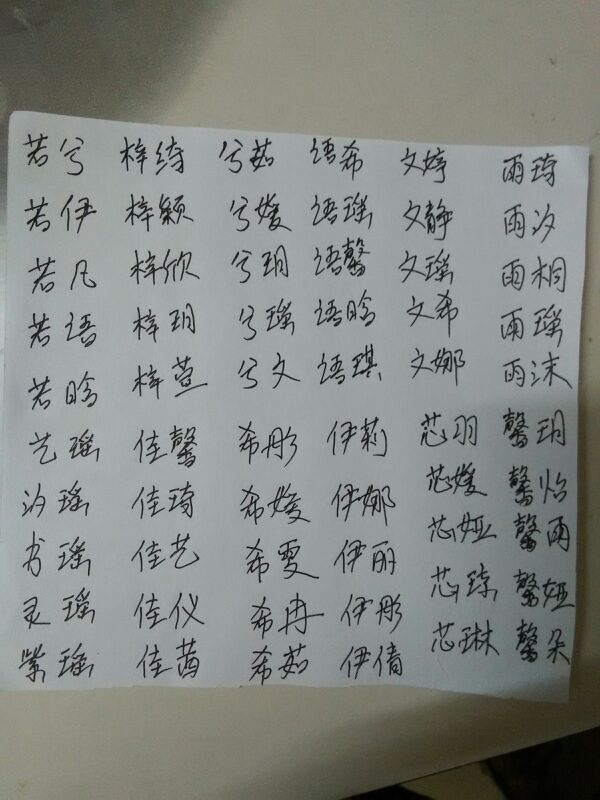 若兮 梓绮 兮茹 语希 文婷 雨琦
若伊 梓颖 兮媛 语瑶 文静 雨汐
若凡 梓欣 兮玥 语馨 文瑶 雨桐
若语 梓玥 兮瑶 语晗 文希 雨瑶
若晗 梓萱 兮文 语琪 文娜 雨沫
艺瑶 佳馨 希彤 伊莉 芯羽 馨玥
汐瑶 佳琦 希媛 伊娜 芯媛 馨怡
书瑶 佳艺 希雯 伊丽 芯娅 馨雨
灵瑶 佳仪 希冉 伊彤 芯琼 馨娅
紫瑶 佳茜 希茹 伊倩 芯琳 馨朵